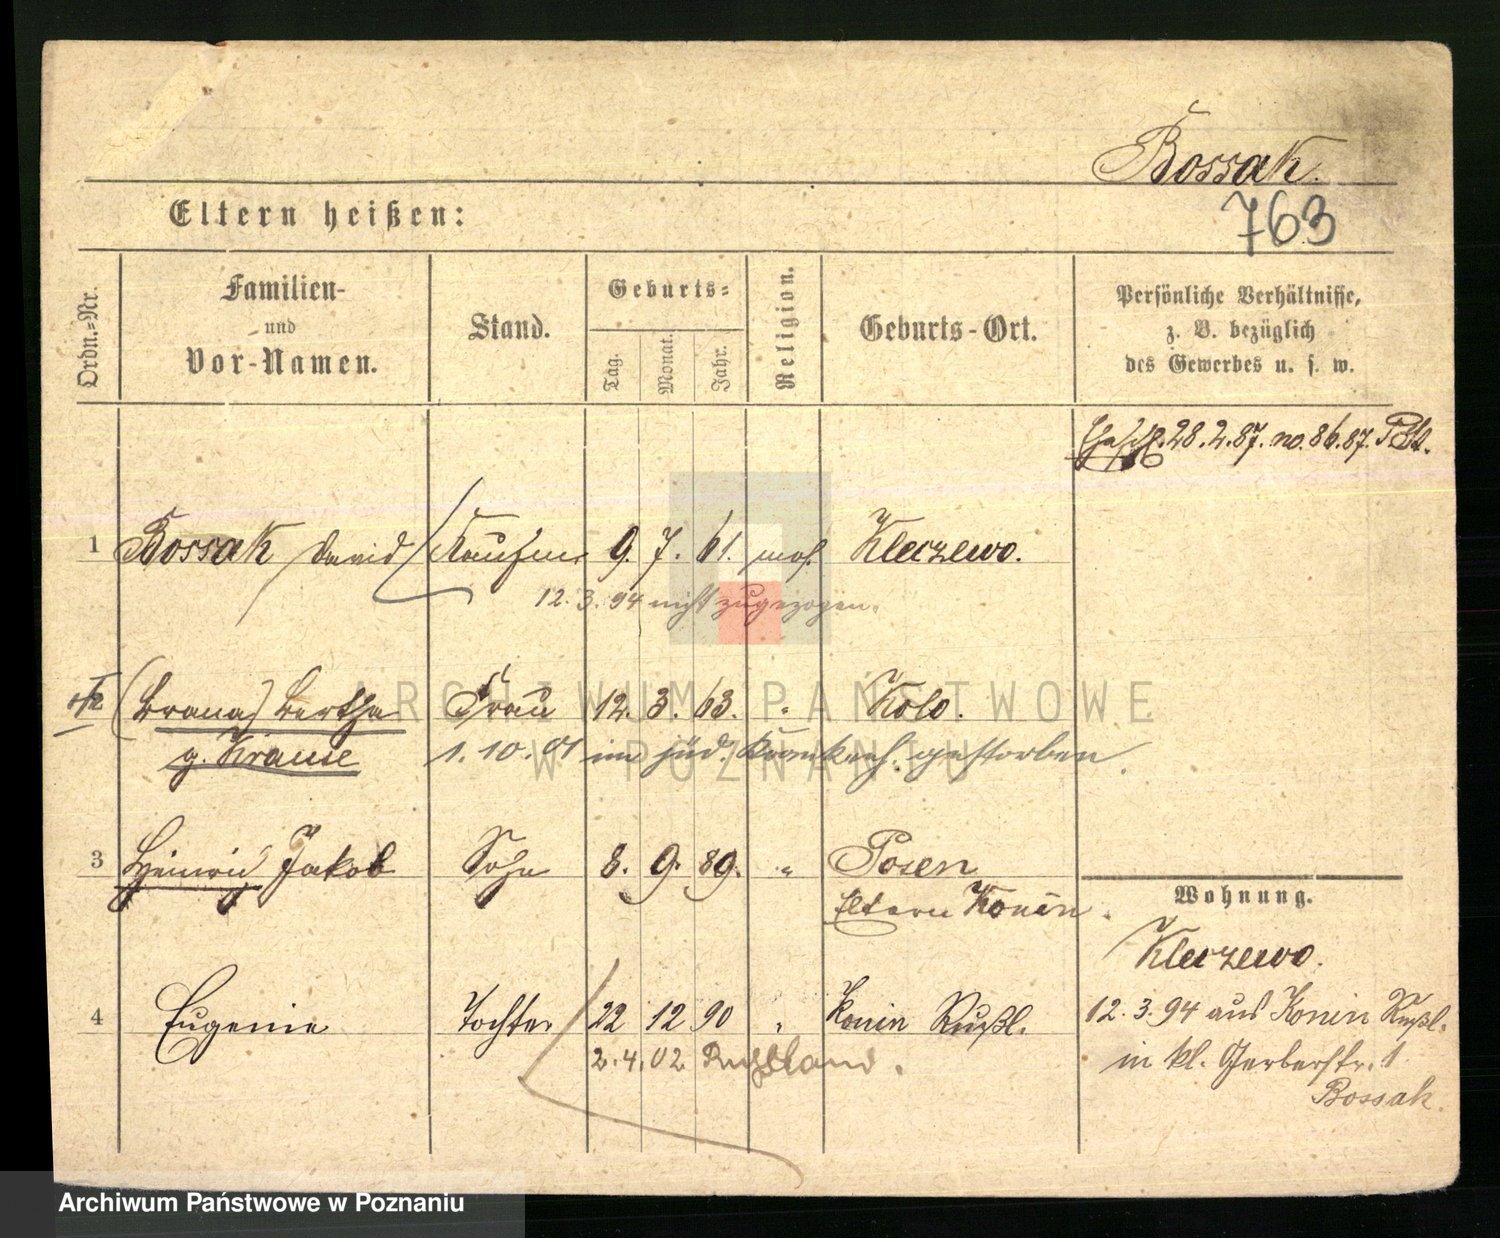 Bossak.
763
Eltern heißen:
Ordn.=Nr.
Familien-
und
Vor-Namen.
Stand.
Geburts=
Tag.
Monat.
Jahr.
Religion.
Geburts-Ort.
Persönliche Verhältnisse,
z. B. bezüglich
des Gewerbes u. s. w.
28.2.87. no. 86.87.
1 Bossak David Kaufm. 9. 7. 61. mos. Kleczewo.
12.3.94 nicht zugezogen.
2 (Brana) Bertha Frau 12. 3. 63. " Kolo.
g. Krause 1.10.01 im jüd. Krankenh. gestorben.
3 Heinrich Jakob Sohn 8. 9. 89. " Posen
Eltern Konin.
Wohnung.
Kleczewo.
4 Eugenie Tochter 22 12 90 " Konin Rußl.
2.4.02 Russland.
12.3.94 aus Konin Rußl.
in kl. Gerberstr. 1
Bossak.
ARCHIWUM PAŃSTWOWE
W POZNANIU
Archiwum Państwowe w Poznaniu